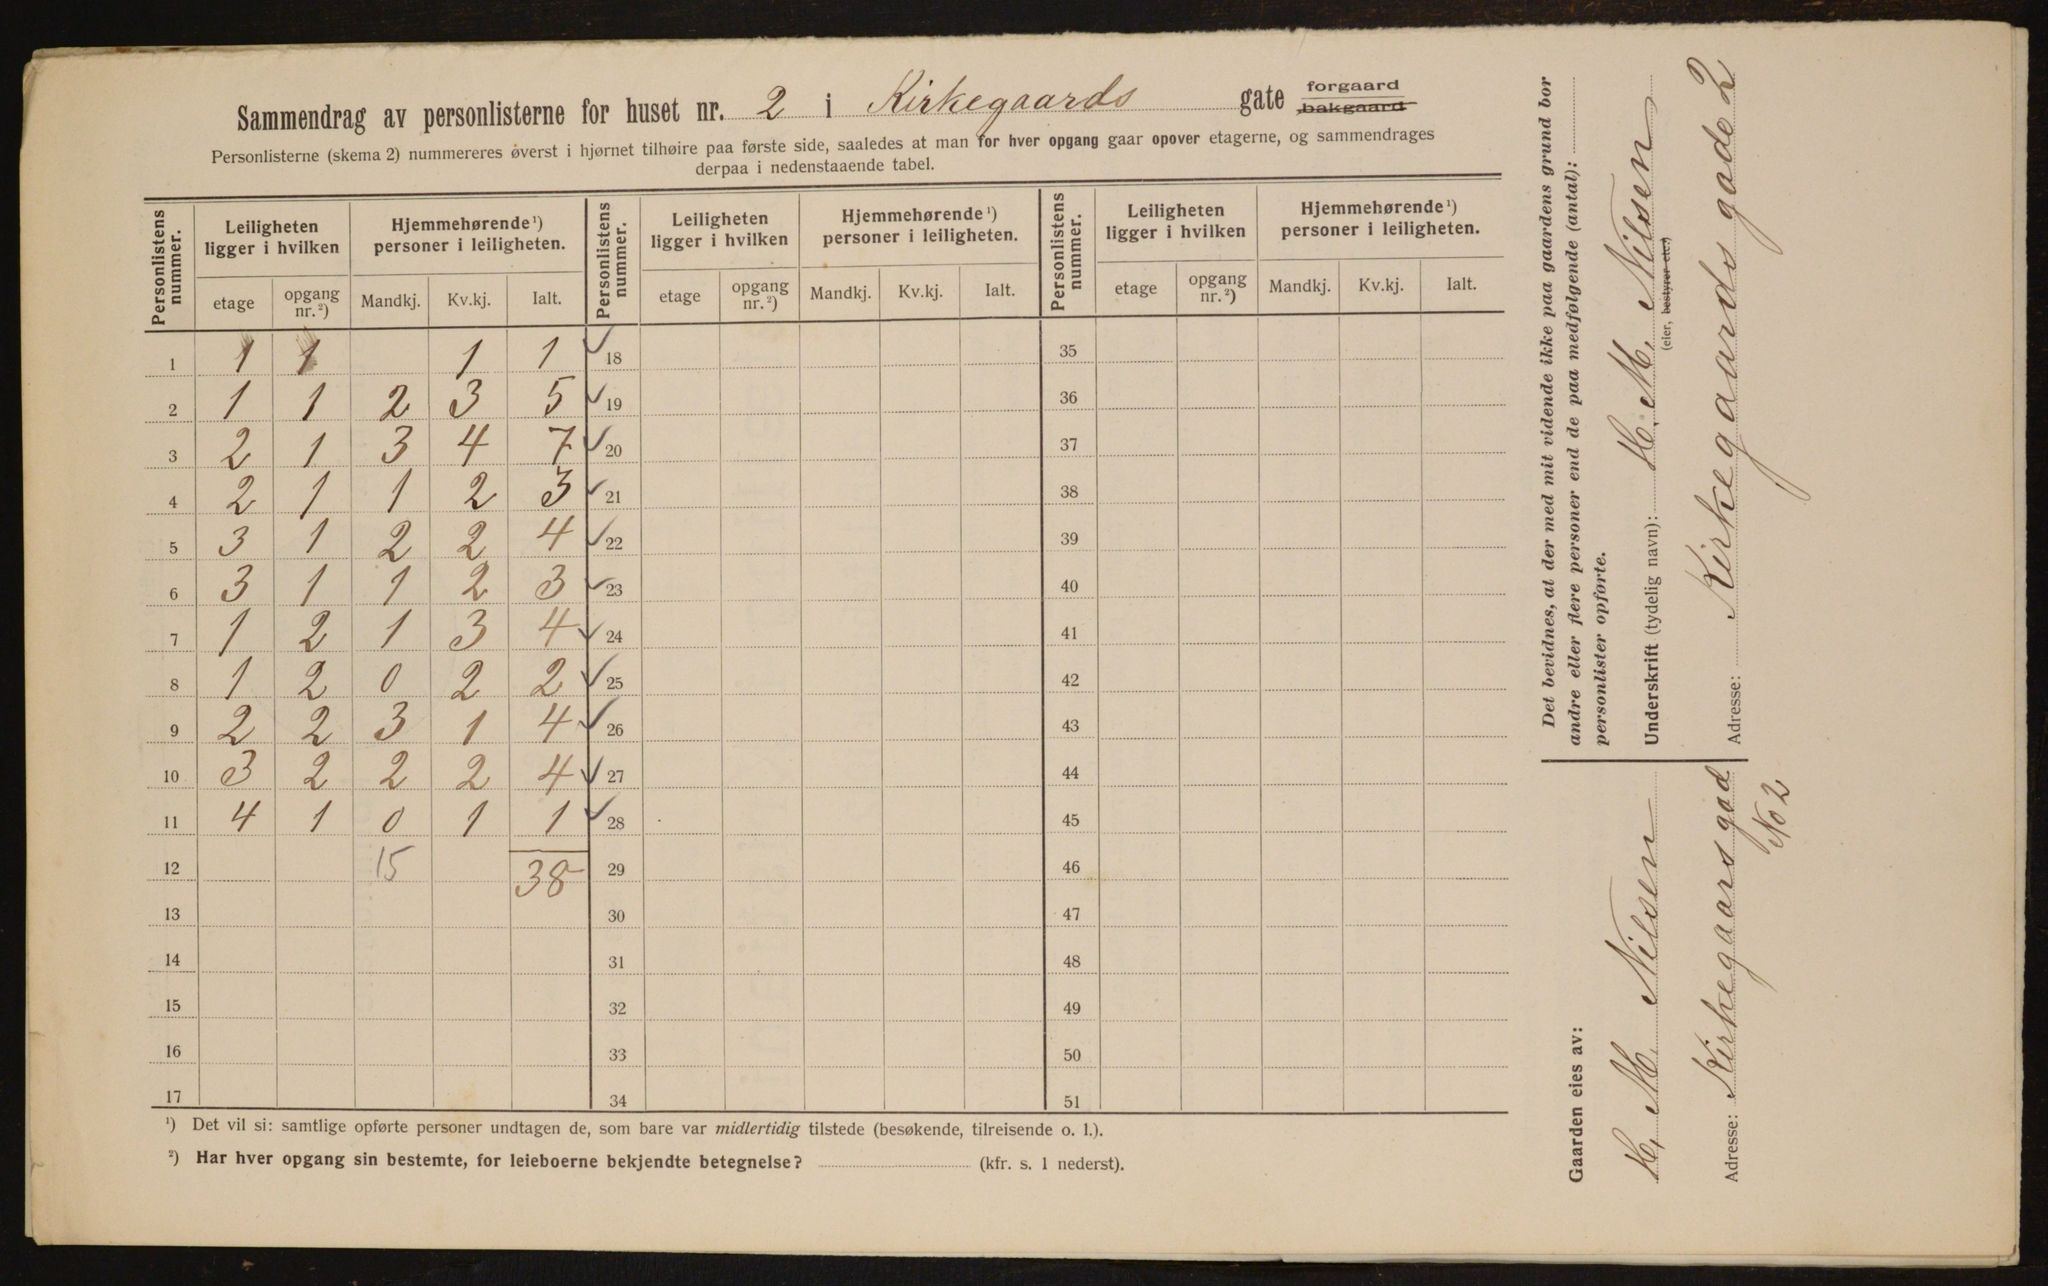 Sammendrag av personlisterne for huset nr. 2 i Kirkegaards gate forgaard bakgaard
Personlisterne (skema 2) nummereres øverst i hjørnet tilhøire paa første side, saaledes at man for hver opgang gaar opover etagerne, og sammendrages
derpaa i nedenstaaende tabel.
Personlistens nummer. Leiligheten ligger i hvilken Hjemmehørende ¹) personer i leiligheten. Personlistens nummer. Leiligheten ligger i hvilken Hjemmehørende ¹) personer i leiligheten. Personlistens nummer. Leiligheten ligger i hvilken Hjemmehørende ¹) personer i leiligheten.
etage opgang nr. ²) Mandkj. Kv.kj. Ialt. etage opgang nr. ²) Mandkj. Kv.kj. Ialt. etage opgang nr. ²) Mandkj. Kv.kj. Ialt.
1 1 1 1 1 ✓ 18 35
2 1 1 2 3 5 ✓ 19 36
3 2 1 3 4 7 ✓ 20 37
4 2 1 1 2 3 ✓ 21 38
5 3 1 2 2 4 ✓ 22 39
6 3 1 1 2 3 ✓ 23 40
7 1 2 1 3 4 ✓ 24 41
8 1 2 0 2 2 ✓ 25 42
9 2 2 3 1 4 ✓ 26 43
10 3 2 2 2 4 ✓ 27 44
11 4 1 0 1 1 ✓ 28 45
12 15 38 29 46
13 30 47
14 31 48
15 32 49
16 33 50
17 34 51
¹) Det vil si: samtlige opførte personer undtagen de, som bare var midlertidig tilstede (besøkende, tilreisende o. l.).
²) Har hver opgang sin bestemte, for leieboerne bekjendte betegnelse? (kfr. s. 1 nederst).
Det bevidnes, at der med mit vidende ikke paa gaardens grund bor
andre eller flere personer end de paa medfølgende (antal):
personlister opførte.
Underskrift (tydelig navn): H. M. Nilsen
(eier, bestyrer etc.)
Adresse: Kirkegaards gade 2
Gaarden eies av:
H. M. Nilsen
Adresse: Kirkegaarsgad
No 2